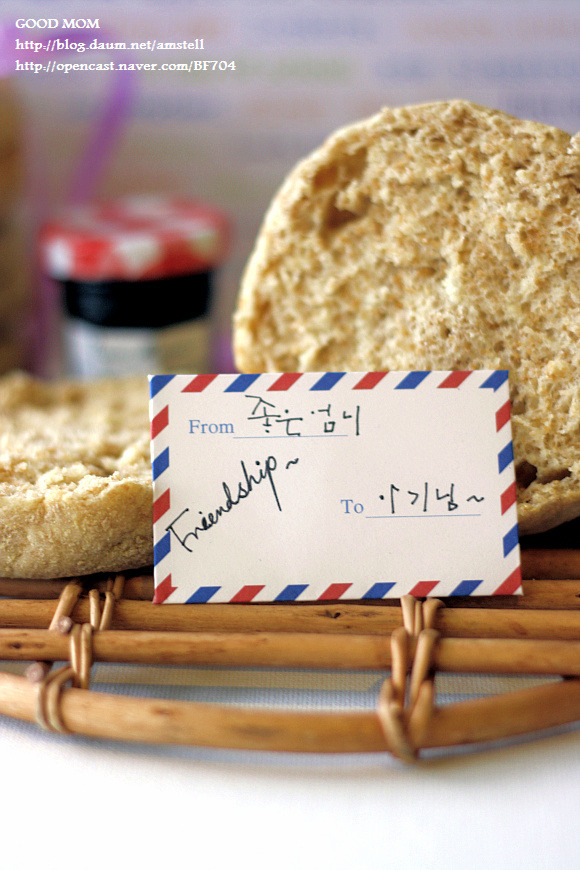 GOOD MOM
http://blog.daum.net/amstell
http://opencast.naver.com/BF704
From 좋은엄니
Friendship~
To 이기님~